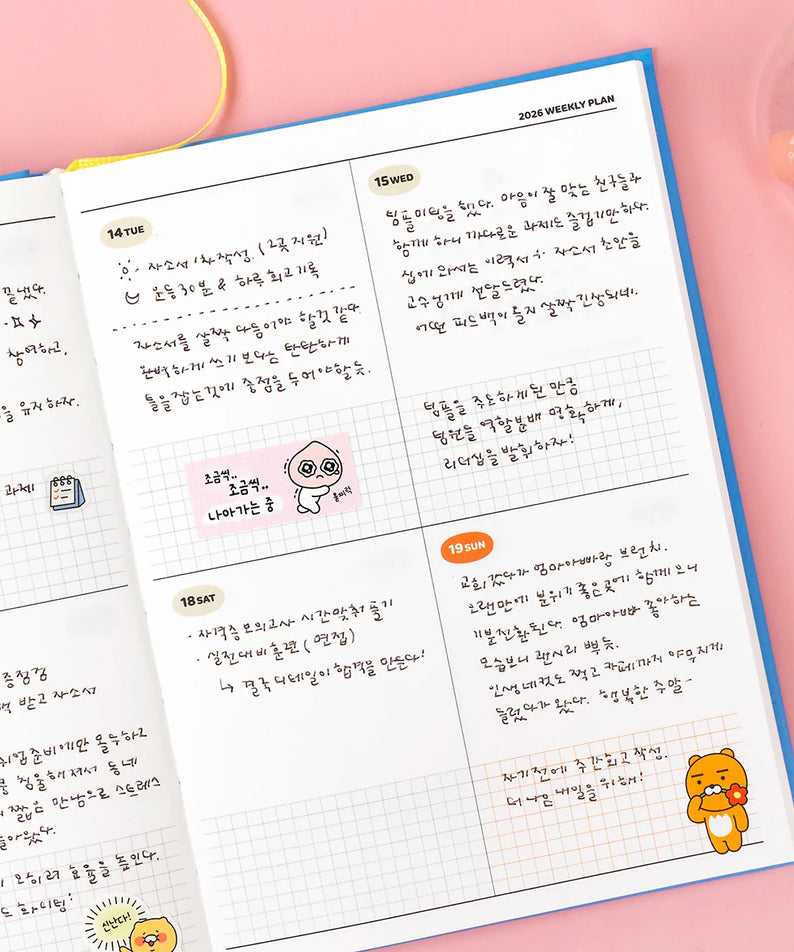 끝냈다.
참여하고,
을 유지하자.
과제
중점검
백 받고 자소서
취업준비에만 몰두하고
침울해져서 동네
짧은 만남으로 스트레스
돌아왔다.
오히려 효율을 높인다.
도 화이팅!
신난다!
2026 WEEKLY PLAN
14 TUE
자소서 1차 작성. (2곳 지원)
운동 30분 & 하루 회고 기록
자소서를 살짝 다듬어야 할것 같다
완벽하게 쓰기 보다는 탄탄하게
틀을 잡는것에 중점을 두어야 할듯.
조금씩..
조금씩..
나아가는 중
15 WED
팀플 미팅을 했다. 마음이 잘 맞는 친구들과
함께 하니 까다로운 과제도 즐겁기만 하다.
집에 와서는 이력서 자소서 초안을
교수님께 전달드렸다.
어떤 피드백이 올지 살짝 긴장되네.
팀플을 주도하게된 만큼
팀원들 역할분배 명확하게,
리더십을 발휘하자!
18 SAT
· 자격증 모의고사 시간 맞춰 풀기
· 실전대비 훈련 (면접)
↳ 결국 디테일이 합격을 만든다!
19 SUN
교회, 갔다가 엄마아빠랑 브런치.
오랜만에 분위기 좋은곳에 함께 오니
기분전환된다. 엄마아빠 좋아하는
모습보니 괜시리 뿌듯.
인생네컷도 찍고 카페까지 야무지게
들렀다가 왔다. 행복한 주말~
자기전에 주간회고 작성.
더 나은 내일을 위해!